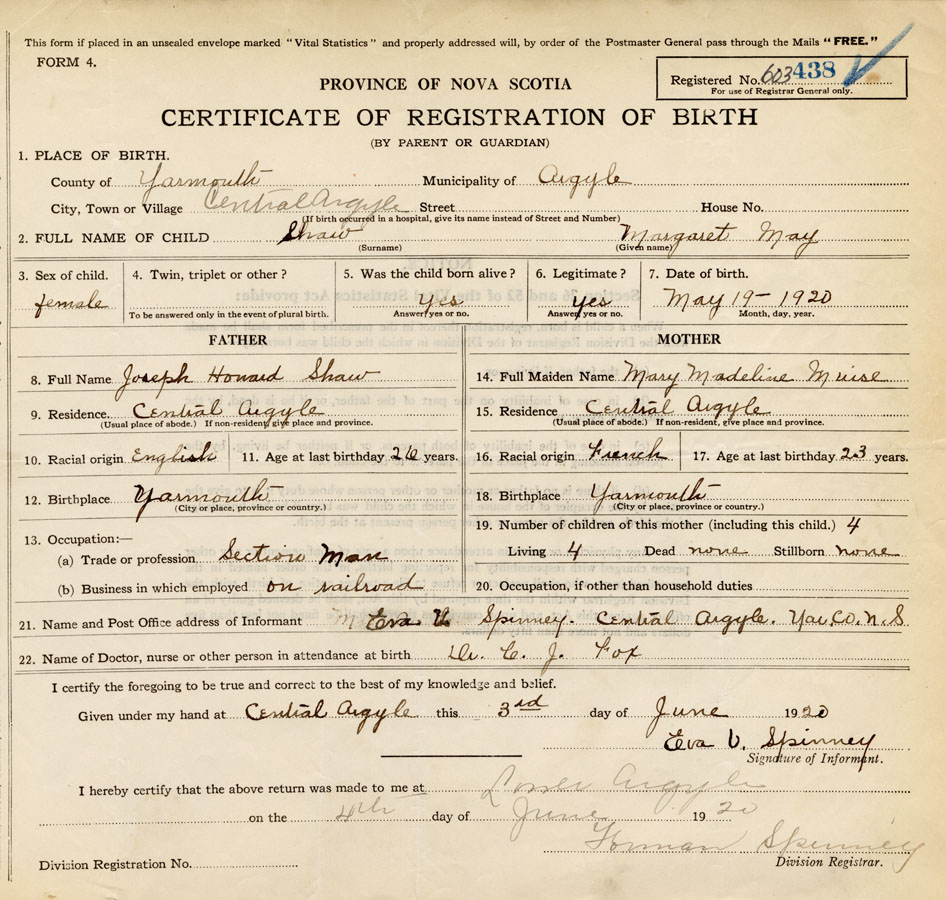 This form if placed in an unsealed envelope marked "Vital Statistics" and properly addressed will, by order of the Postmaster General pass through the Mails "FREE."
FORM 4.
PROVINCE OF NOVA SCOTIA
Registered No. 603438
For use of Registrar General only.
CERTIFICATE OF REGISTRATION OF BIRTH
(BY PARENT OR GUARDIAN)
1. PLACE OF BIRTH.
County of Yarmouth Municipality of Argyle
City, Town or Village Central Argyle Street House No.
(If birth occurred in a hospital, give its name instead of Street and Number)
2. FULL NAME OF CHILD Shaw Margaret May
(Surname) (Given name)
3. Sex of child. 4. Twin, triplet or other? 5. Was the child born alive? 6. Legitimate? 7. Date of birth.
female Yes yes May 19 - 1920
To be answered only in the event of plural birth. Answer yes or no. Answer yes or no. Month, day, year.
FATHER MOTHER
8. Full Name Joseph Howard Shaw 14. Full Maiden Name Mary Madeline Muise
9. Residence. Central Argyle 15. Residence Central Argyle
(Usual place of abode.) If non-resident, give place and province. (Usual place of abode.) If non-resident, give place and province.
10. Racial origin English 11. Age at last birthday 26 years. 16. Racial origin French 17. Age at last birthday 23 years.
12. Birthplace Yarmouth 18. Birthplace Yarmouth
(City or place, province or country.) (City or place, province or country.)
19. Number of children of this mother (including this child.) 4
13. Occupation:—
(a) Trade or profession Section Man Living 4 Dead none Stillborn none
(b) Business in which employed on railroad 20. Occupation, if other than household duties
21. Name and Post Office address of Informant Eva V. Spinney. Central Argyle. Yar. Co. N.S.
22. Name of Doctor, nurse or other person in attendance at birth Dr. C. J. Fox
I certify the foregoing to be true and correct to the best of my knowledge and belief.
Given under my hand at Central Argyle this 3rd day of June 1920
Eva V. Spinney
Signature of Informant.
I hereby certify that the above return was made to me at Lower Argyle
on the 4th day of June 1920
Forman Spinney
Division Registration No. Division Registrar.